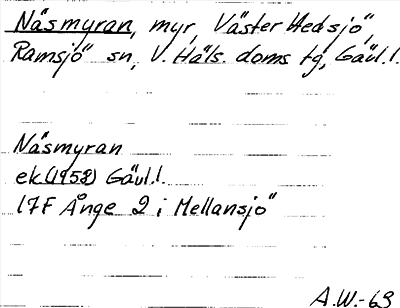 Näsmyran, myr, Väster Hedsjö,
Ramsjö sn, V. Häls. doms tg, Gävl.l.
Näsmyran
ek.(1958) Gävl.l.
17F Ånge 2 i Mellansjö
A.W.-63